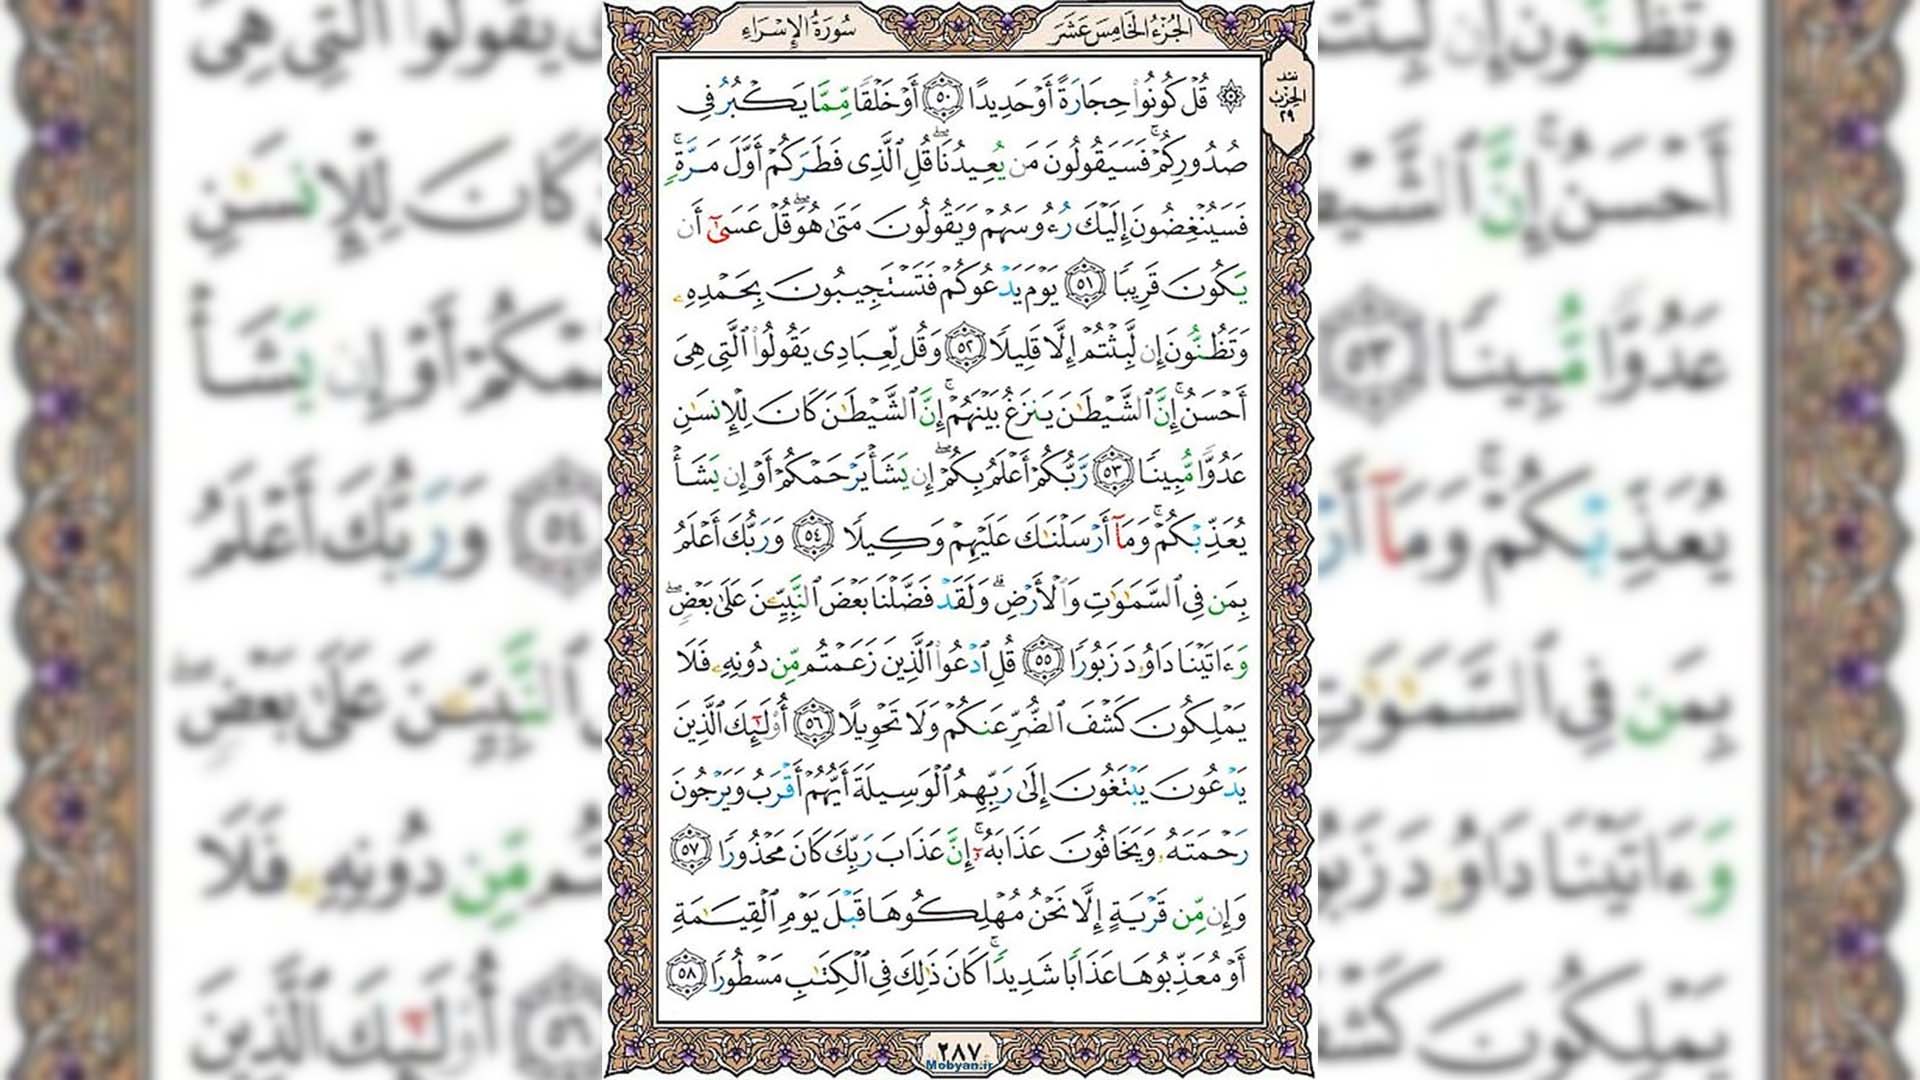 الجزء الخامس عشر
سورة الإسراء
نصف
الحزب
٢٩
۞ قُلْ كُونُوا۟ حِجَارَةً أَوْ حَدِيدًا ٥٠ أَوْ خَلْقًا مِّمَّا يَكْبُرُ فِى
صُدُورِكُمْ ۚ فَسَيَقُولُونَ مَن يُعِيدُنَا ۖ قُلِ ٱلَّذِى فَطَرَكُمْ أَوَّلَ مَرَّةٍ ۚ
فَسَيُنْغِضُونَ إِلَيْكَ رُءُوسَهُمْ وَيَقُولُونَ مَتَىٰ هُوَ ۖ قُلْ عَسَىٰٓ أَن
يَكُونَ قَرِيبًا ٥١ يَوْمَ يَدْعُوكُمْ فَتَسْتَجِيبُونَ بِحَمْدِهِۦ
وَتَظُنُّونَ إِن لَّبِثْتُمْ إِلَّا قَلِيلًا ٥٢ وَقُل لِّعِبَادِى يَقُولُوا۟ ٱلَّتِى هِىَ
أَحْسَنُ ۚ إِنَّ ٱلشَّيْطَـٰنَ يَنزَغُ بَيْنَهُمْ ۚ إِنَّ ٱلشَّيْطَـٰنَ كَانَ لِلْإِنسَـٰنِ
عَدُوًّا مُّبِينًا ٥٣ رَّبُّكُمْ أَعْلَمُ بِكُمْ ۖ إِن يَشَأْ يَرْحَمْكُمْ أَوْ إِن يَشَأْ
يُعَذِّبْكُمْ ۚ وَمَآ أَرْسَلْنَـٰكَ عَلَيْهِمْ وَكِيلًا ٥٤ وَرَبُّكَ أَعْلَمُ
بِمَن فِى ٱلسَّمَـٰوَٰتِ وَٱلْأَرْضِ ۗ وَلَقَدْ فَضَّلْنَا بَعْضَ ٱلنَّبِيِّـۧنَ عَلَىٰ بَعْضٍ ۖ
وَءَاتَيْنَا دَاوُۥدَ زَبُورًا ٥٥ قُلِ ٱدْعُوا۟ ٱلَّذِينَ زَعَمْتُم مِّن دُونِهِۦ فَلَا
يَمْلِكُونَ كَشْفَ ٱلضُّرِّ عَنكُمْ وَلَا تَحْوِيلًا ٥٦ أُو۟لَـٰٓئِكَ ٱلَّذِينَ
يَدْعُونَ يَبْتَغُونَ إِلَىٰ رَبِّهِمُ ٱلْوَسِيلَةَ أَيُّهُمْ أَقْرَبُ وَيَرْجُونَ
رَحْمَتَهُۥ وَيَخَافُونَ عَذَابَهُۥٓ ۚ إِنَّ عَذَابَ رَبِّكَ كَانَ مَحْذُورًا ٥٧
وَإِن مِّن قَرْيَةٍ إِلَّا نَحْنُ مُهْلِكُوهَا قَبْلَ يَوْمِ ٱلْقِيَـٰمَةِ
أَوْ مُعَذِّبُوهَا عَذَابًا شَدِيدًا ۚ كَانَ ذَٰلِكَ فِى ٱلْكِتَـٰبِ مَسْطُورًا ٥٨
٢٨٧
Mobyan.ir